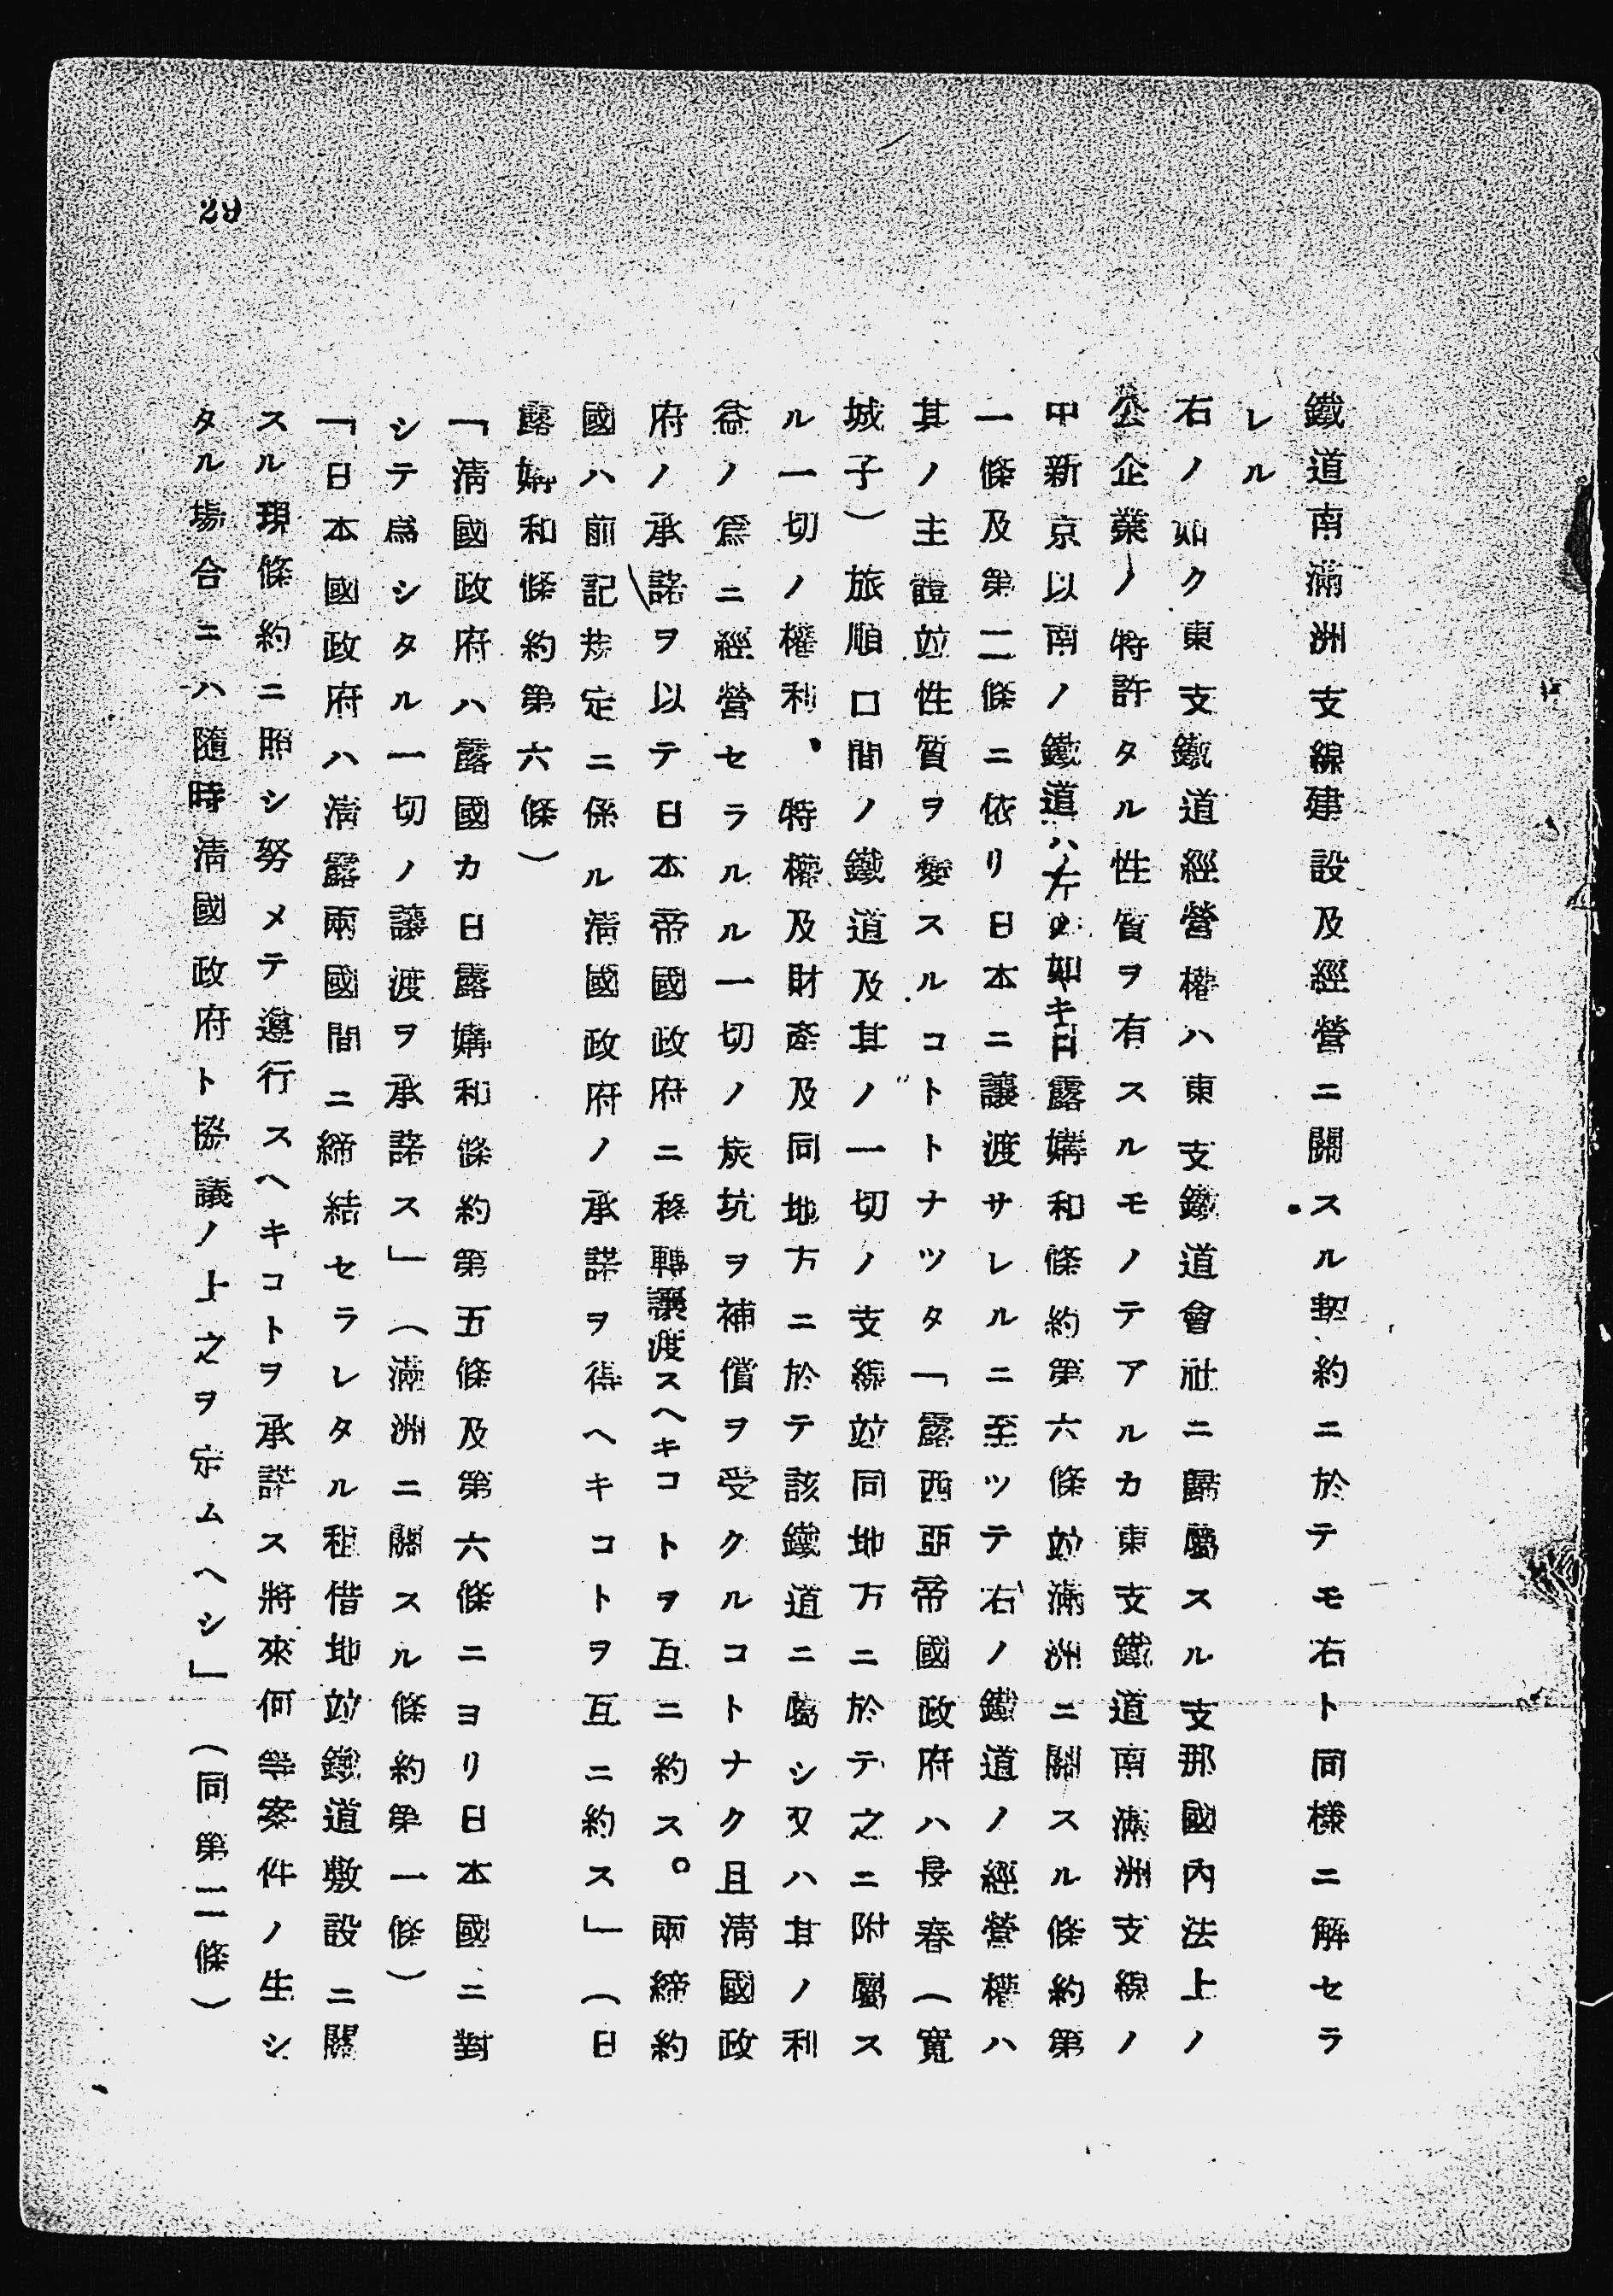 29
鐵道南滿洲支線建設及經營ニ關スル契約ニ於テモ右ト同樣ニ解セラ
レル
右ノ如ク東支鐵道經營權ハ東支鐵道會社ニ歸屬スル支那國內法上ノ
公企業ノ特許タル性質ヲ有スルモノテアルカ東支鐵道南滿洲支線ノ
中新京以南ノ鐵道ハ左ノ如キ日露媾和條約第六條竝滿洲ニ關スル條約第
一條及第二條ニ依リ日本ニ讓渡サレルニ至ツテ右ノ鐵道ノ經營權ハ
其ノ主體竝性質ヲ變スルコトトナツタ「露西亞帝國政府ハ長春(寬
城子)旅順口間ノ鐵道及其ノ一切ノ支線竝同地方ニ於テ之ニ附屬ス
ル一切ノ權利、特權及財產及同地方ニ於テ該鐵道ニ屬シ又ハ其ノ利
益ノ爲ニ經營セラルル一切ノ炭坑ヲ補償ヲ受クルコトナク且淸國政
府ノ承諾ヲ以テ日本帝國政府ニ移轉讓渡スヘキコトヲ約ス。兩締約
國ハ前記規定ニ係ル淸國政府ノ承諾ヲ得ヘキコトヲ互ニ約ス」(日
露媾和條約第六條)
「淸國政府ハ露國カ日露媾和條約第五條及第六條ニヨリ日本國ニ對
シテ爲シタル一切ノ讓渡ヲ承諾ス」(滿洲ニ關スル條約第一條)
「日本國政府ハ淸露兩國間ニ締結セラレタル租借地竝鐵道敷設ニ關
スル現條約ニ照シ努メテ遵行スヘキコトヲ承諾ス將來何等案件ノ生シ
タル場合ニハ隨時淸國政府ト協議ノ上之ヲ定ムヘシ」(同第二條)